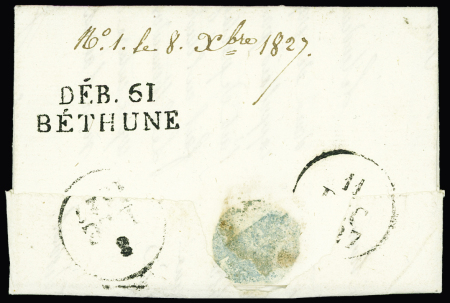 No. 1. le 8. Xbre 1827.
DÉB. 61
BÉTHUNE
8